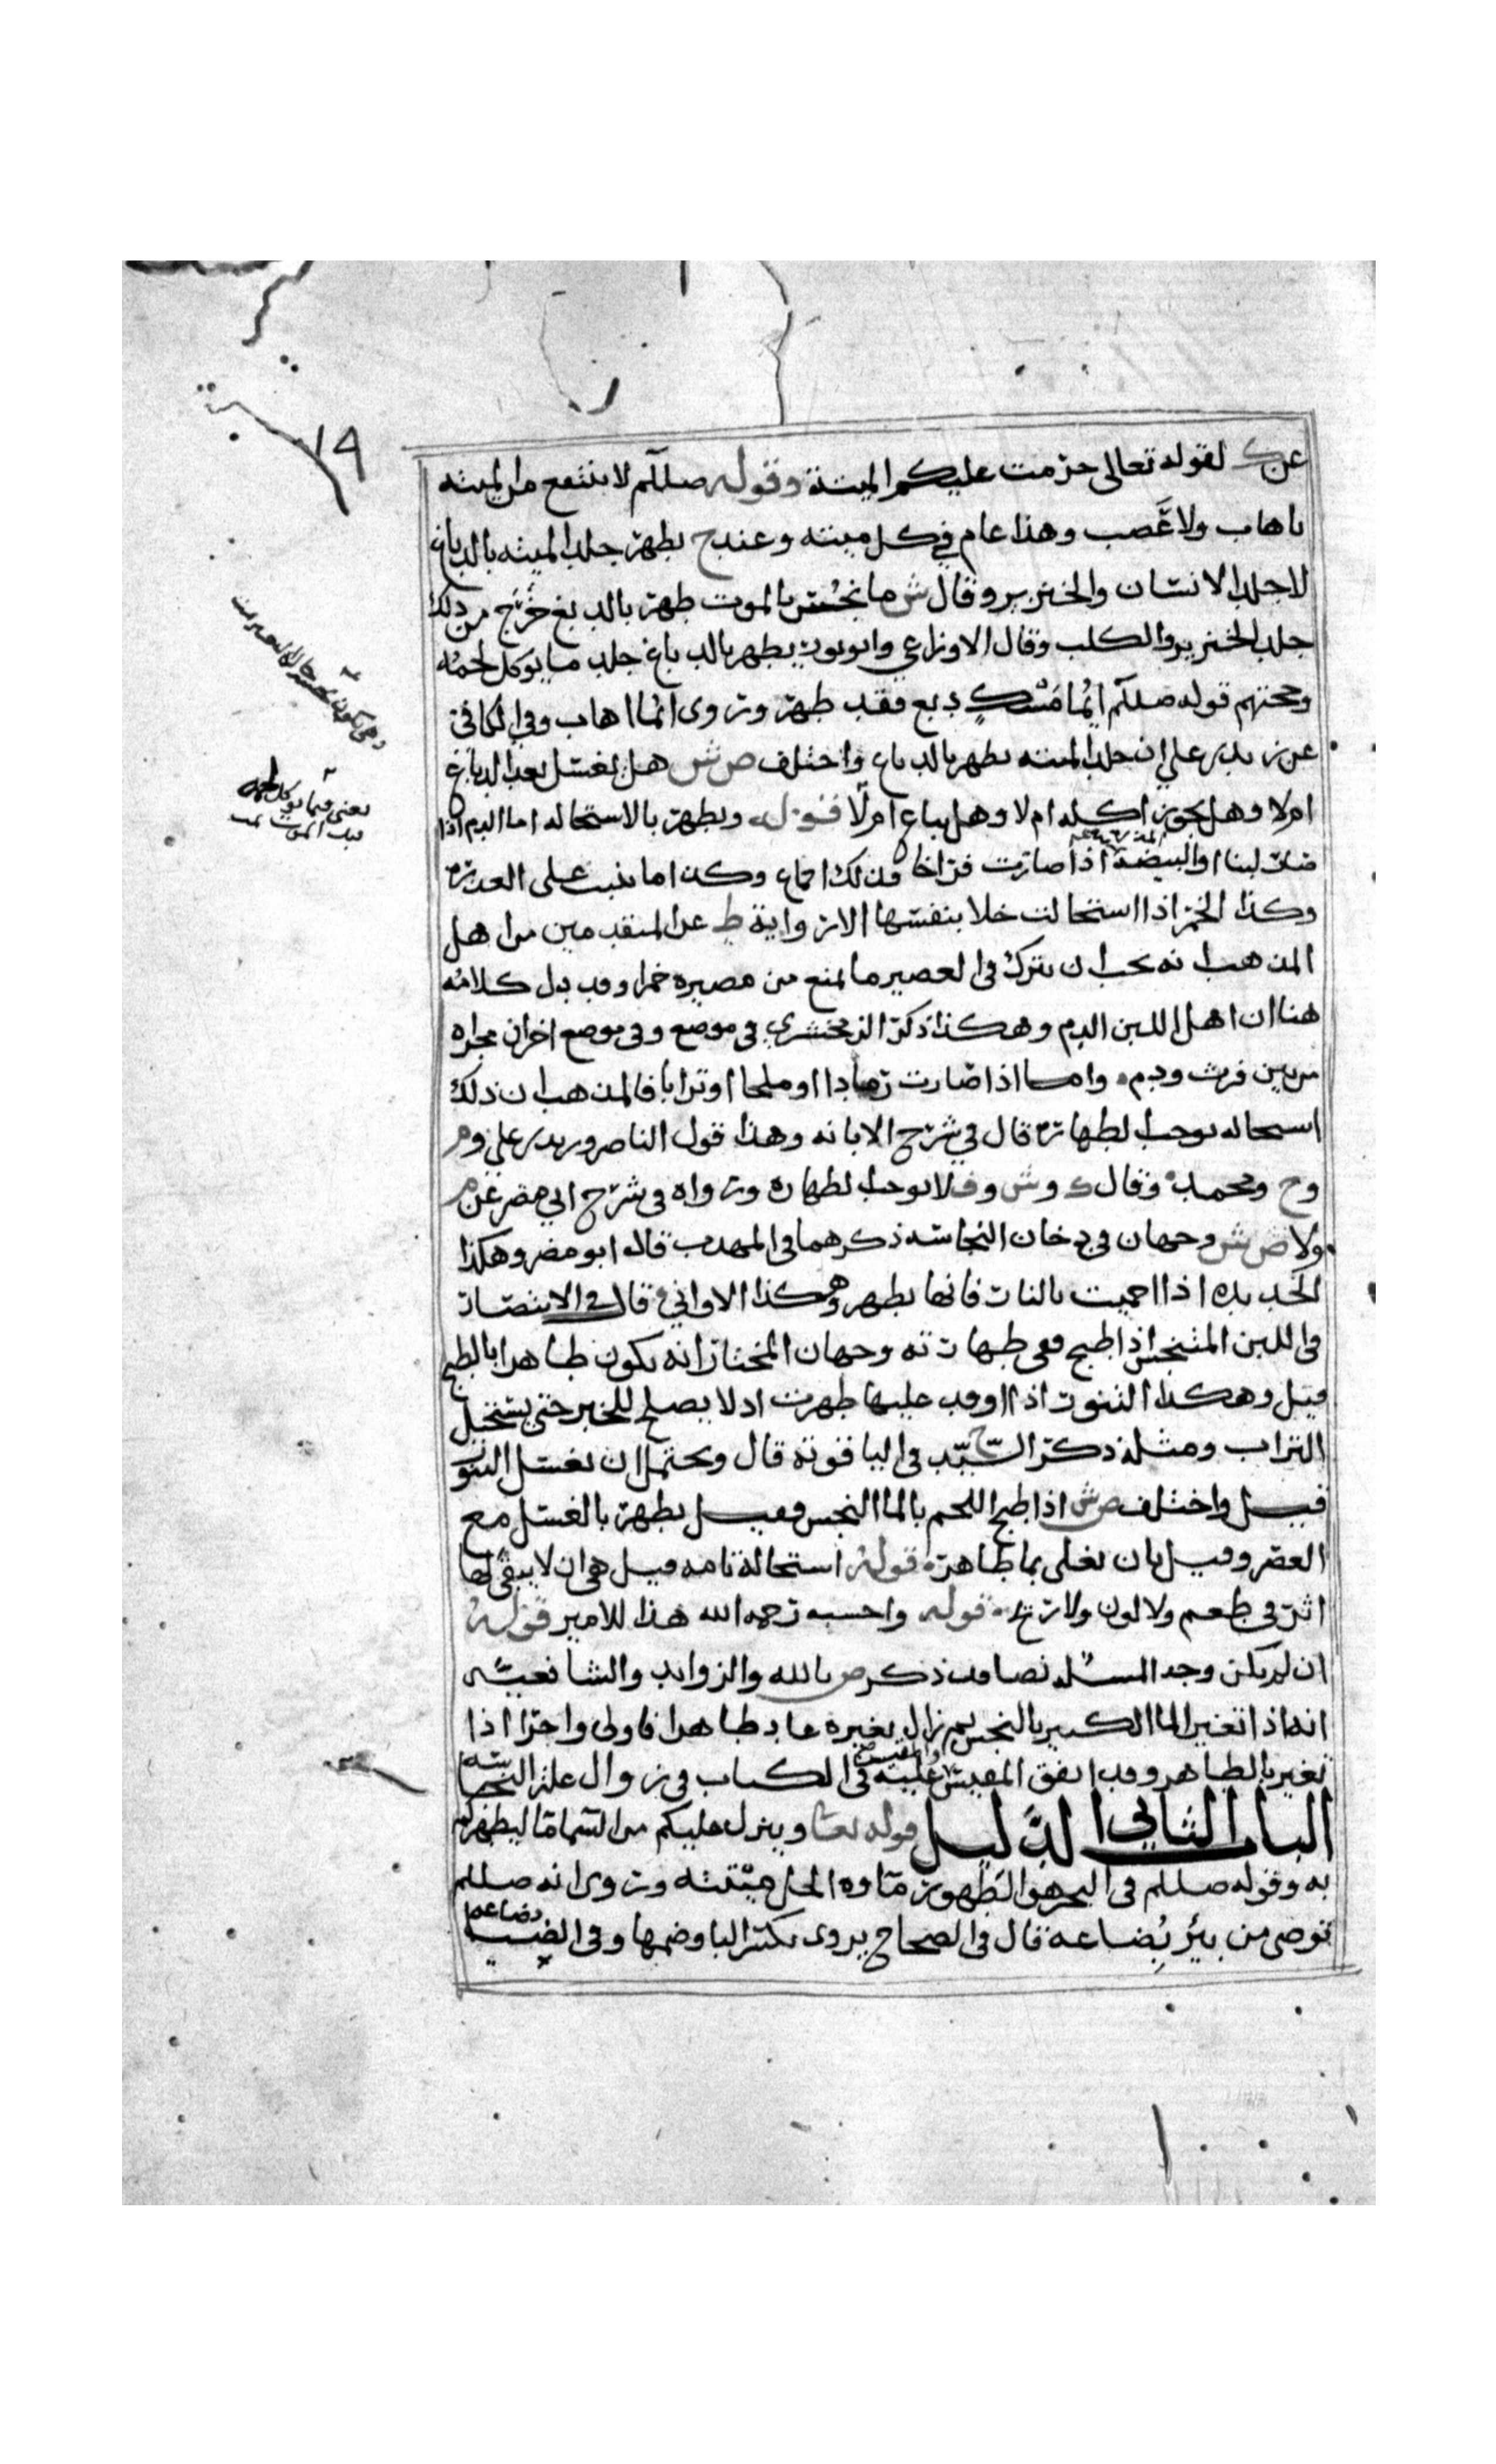 ١٩
عن ك لقوله تعالى حرمت عليكم الميتة وقوله صللم لا ينتفع من الميته
باهاب ولا عصب وهذا عام في كل ميته وعند ح يطهر جلد الميته بالدباغ
لا جلد الانسان والخنزير وقال ش ما نجس بالموت طهر بالدبغ خرج من ذلك
جلد الخنزير والكلب وقال الاوزاعي وابو ثور يطهر بالدباغ جلد ما يوكل لحمه
وحجتهم قوله صللم ايما مسك دبغ فقد طهر وروى ايما اهاب وفي الكافي
عن زيد بن علي ان جلد الميته يطهر بالدباغ واختلف ص ش هل يغسل بعد الدباغ
ام لا وهل يجوز اكله ام لا وهل يباع ام لا قوله ويطهر بالاستحاله اما الدم اذا
صار لبنا او البيضة اذا صارت فراخا فذلك اجماع وكذا ما نبت على العذرة
وكذا الخمر اذا استحالت خلا بنفسها الا رواية ط عن المتقدمين من اهل
المذهب انه يجب ان يترك في العصير ما يمنع من مصيره خمرا وقد دل كلامه
هنا ان اهل اللبن الدم وهكذا ذكر الزمخشري في موضع وفي موضع اخر ان مجراه
من بين فرث ودم واما اذا صارت رمادا او ملحا او ترابا فالمذهب ان ذلك
استحاله توجب الطهارة قال في شرح الابانه وهذا قول الناصر وزيد بن علي وم
وح ومحمد وقال ك وش وف لا توجب الطهارة ورواه في شرح ابي مضر عن م
ولاص ش وجهان في دخان النجاسه ذكرهما في المهذب قاله ابو مضر وهكذا
الحديده اذا احميت بالنار فانها تطهر وهكذا الاواني قال في الانتصار
في اللبن المتنجس اذا طبخ ففي طهارته وجهان المختار انه يكون طاهرا بالطبخ
قيل وهكذا التنور اذا اوقد عليها طهرت اذ لا يصلح للخبز حتى يستحيل
التراب ومثله ذكر السيد ح في الياقوتة قال ويحتمل ان يغسل التنور
قيل واختلف ص ش اذا طبخ اللحم بالما النجس فقيل يطهر بالغسل مع
العصر وقيل بان يغلى بما طاهر قوله استحالة تامه قيل هي ان لا يبقى لها
اثر في طعم ولا لون ولا ريح قوله واحسبه رحمه الله هذا للامير قوله
ان لم يكن وجد المسئله نصا وقد ذكر ص بالله والزوايد والشافعي
انه اذا تغير الما الكثير بالنجس ثم زال تغيره عاد طاهرا فاولى واحرا اذا
تغير بالطاهر وقد اتفق المقيس والمقيس عليه في الكتاب في زوال علة النجاسه
الباب الثاني الدليل قوله تعا وينزل عليكم من السما ما ليطهركم
به وقوله صللم في البحر هو الطهور ماوه الحل ميتته وروى انه صللم
توضى من بئر بُضاعه قال في الصحاح يروى بكسر البا وضمها وفي الضيا
بضاعه
يعني فيما يوكل لحمه